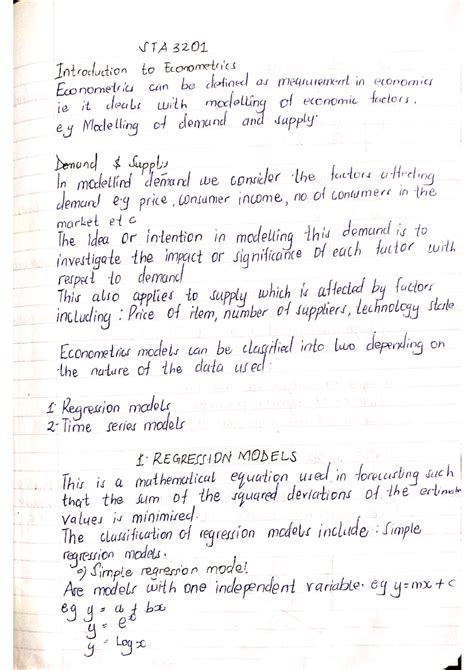 STA 3201
Introduction to Econometrics
Econometrics can be defined as measurement in economics
ie it deals with modelling of economic factors.
e.g Modelling of demand and supply.
Demand & Supply
In modellind demand we consider the factors affecting
demand e.g price, consumer income, no of consumers in the
market etc
The idea or intention in modelling this demand is to
investigate the impact or significance of each factor with
respect to demand
This also applies to supply which is affected by factors
including : Price of item, number of suppliers, technology state
Econometrics models can be classified into two depending on
the nature of the data used:
1. Regression models
2. Time series models
1. REGRESSION MODELS
This is a mathematical equation used in forecasting such
that the sum of the squared deviations of the
values is minimised.
The classification of regression models include : Simple
regression models.
a) Simple regression model
Are models with one independent variable. eg y=mx+c
eg y = a + bx
y = e^x
y = Log x